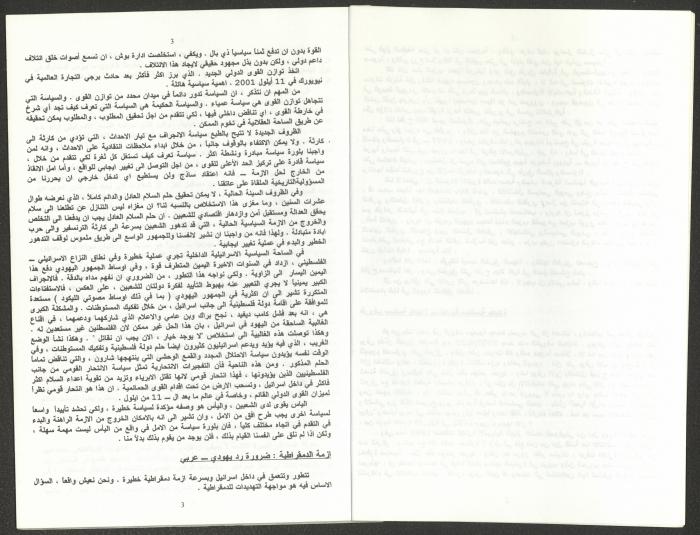 3
القوة بدون ان تدفع ثمناً سياسياً ذي بال . ويكفي ، استخلصت ادارة بوش ، ان تسمع أصوات خلق ائتلاف
داعم دولي ، ولكن بدون بذل مجهود حقيقي لايجاد هذا الائتلاف .
اتخذ توازن القوى الدولي الجديد ، الذي برز اكثر فأكثر بعد حادث برجي التجارة العالمية في
نيويورك في 11 أيلول 2001 ، اهمية سياسية هائلة .
من المهم ان نتذكر ، ان السياسة تدور دائماً في ميدان محدد من توازن القوى . والسياسة التي
تتجاهل توازن القوى هي سياسة عمياء . والسياسة الحكيمة هي السياسة التي تعرف كيف تجد أي شرخ
في خارطة القوى ، اي تناقض داخلي فيها ، لكي تتقدم من اجل تحقيق المطلوب ، والمطلوب يمكن تحقيقه
عن طريق الساحة العقلانية في تخوم الممكن .
الظروف الجديدة لا تتيح بالطبع سياسة الانجراف مع تيار الاحداث ، التي تؤدي من كارثة الى
كارثة . ولا يمكن الاكتفاء بالوقوف جانباً ، من خلال ابداء ملاحظات انتقادية على الاحداث ، وانه لمن
واجبنا بلورة سياسة مبادرة ونشطة اكثر . سياسة تعرف كيف تستغل كل ثغرة لكي تتقدم من خلال ،
سياسة قادرة على تركيز الحد الأعلى للقوى ، من اجل التوصل الى تغيير ايجابي للواقع ، وأما امل الانقاذ
من الخارج لحل الازمة ــ فانه اعتقاد ساذج ولن يستطيع اي تدخل خارجي ان يحررنا من
المسؤوليةالتاريخية الملقاة على عاتقنا .
وفي الظروف السيئة الحالية ، لا يمكن تحقيق حلم السلام العادل والدائم كاملاً ، الذي نعرضه طوال
عشرات السنين ، وما مغزى هذا الاستخلاص بالنسبه لنا؟ ان مغزاه ليس التنازل عن تطلعنا الى سلام
يحقق العدالة ومستقبل آمن وازدهار اقتصادي للشعبين . ان حلم السلام العادل يجب ان يدفعنا الى التخلص
والخروج من الازمة السياسية الحالية ، التي قد تدهور الشعبين بسرعة الى كارثة الترنسفير والى حرب
ابادة متبادلة . ولهذا فانه من واجبنا ان نشير لانفسنا وللجمهور الواسع الى طريق ملموس لوقف التدهور
الخطير والبدء في عملية تغيير ايجابية .
في الساحة السياسية الاسرائيلية الداخلية تجري عملية خطيرة وفي نطاق النزاع الاسرائيلي ــ
الفلسطيني ، ازداد في السنوات الاخيرة اليمين المتطرف قوة ، وفي اوساط الجمهور اليهودي دفع هذا
اليمين اليسار الى الزاوية . ولكي نواجه هذا التطور ، من الضروري ان نفهم مداه بالدقة . فالانجراف
الكبير يمينياً لا يجري التعبير عنه بهبوط التأييد لفكرة دولتان للشعبين ، على العكس ، فالاستفتاءات
المتكررة تشير الى ان اكثرية في الجمهور اليهودي ( بما في ذلك اوساط مصوتي الليكود ) مستعدة
للموافقة على اقامة دولة فلسطينية الى جانب اسرائيل ، من خلال تفكيك المستوطنات . والمشكلة الكبرى
هي ، انه بعد فشل كامب ديفيد ، نجح براك وبن عامي والاعلام الذي شاركهما ودعمهما ، في اقناع
الغالبية الساحقة من اليهود في اسرائيل ، بان هذا الحل غير ممكن لان الفلسطينين غير مستعدين له .
وهكذا توصلت هذه الغالبية الى استخلاص "لا يوجد خيار ، الان يجب ان نقاتل " . وهكذا نشأ الوضع
الغريب ، الذي فيه يؤيد ويدعم اسرائيليون كثيرون ايضاً حلم دولة فلسطينية وتفكيك المستوطنات ، وفي
الوقت نفسه يؤيدون سياسة الاحتلال المجدد والقمع الوحشي التي ينتهجها شارون ، والتي تناقض تماماً
الحلم المذكور . ومن هذه الناحية فأن التفجيرات الانتحارية تمثل سياسة الانتحار القومي من جانب
الفلسطينيين الذين يؤيدونها ، فهذا انتحار قومي لانها تقتل الابرياء وتزيد من تقوية اعداء السلام اكثر
فأكثر في داخل اسرائيل ، وتسحب الارض من تحت اقدام القوى الحمائمية . ان هذا هو انتحار قومي نظراً
لميزان القوى الدولي القائم ، وخاصة في عالم ما بعد ال ــ 11 من ايلول .
الياس يقوى لدى الشعبين ، والياس هو وصفه مؤكدة لسياسة خطيرة ، ولكي تحشد تأييداً واسعاً
لسياسة اخرى يجب طرح افق من الامل ، وان تشير الى انه بالامكان الخروج من الازمة الراهنة والبدء
في التقدم في اتجاه مختلف كلياً ، فان بلورة سياسة من الامل في واقع من الياس ليست مهمة سهلة ،
ولكن اذا لم نلق على انفسنا القيام بذلك ، فلن يوجد من يقوم بذلك بدلاً منا .
ازمة الدمقراطية : ضرورة رد يهودي ــ عربي
تتطور وتتعمق في داخل اسرائيل وبسرعة ازمة دمقراطية خطيرة . ونحن نعيش واقعاً ، السؤال
الاساس فيه هو مواجهة التهديدات للدمقراطية .
3